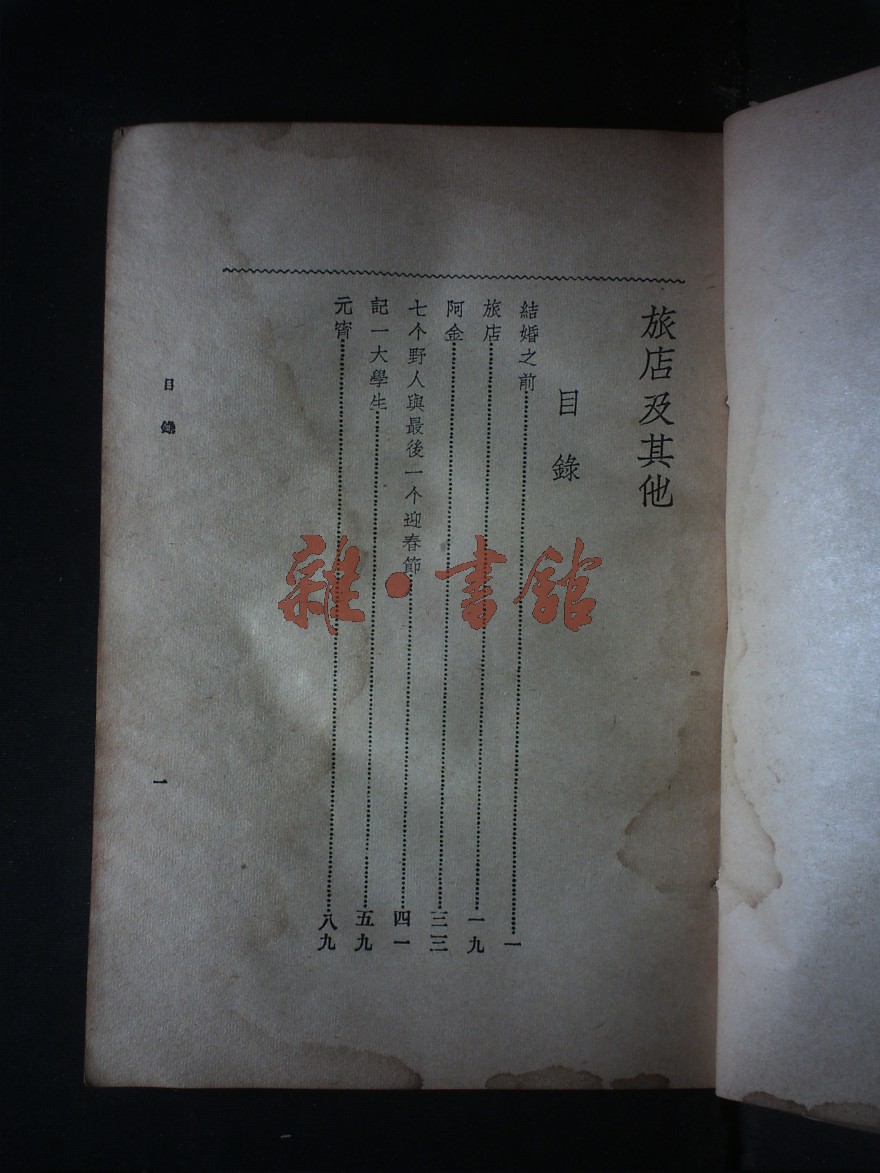 旅店及其他
目錄
結婚之前…………一
旅店…………一九
阿金…………三三
七个野人與最後一个迎春節…………四一
記一大學生…………五九
元宵…………八九
目錄
一
雜·書館